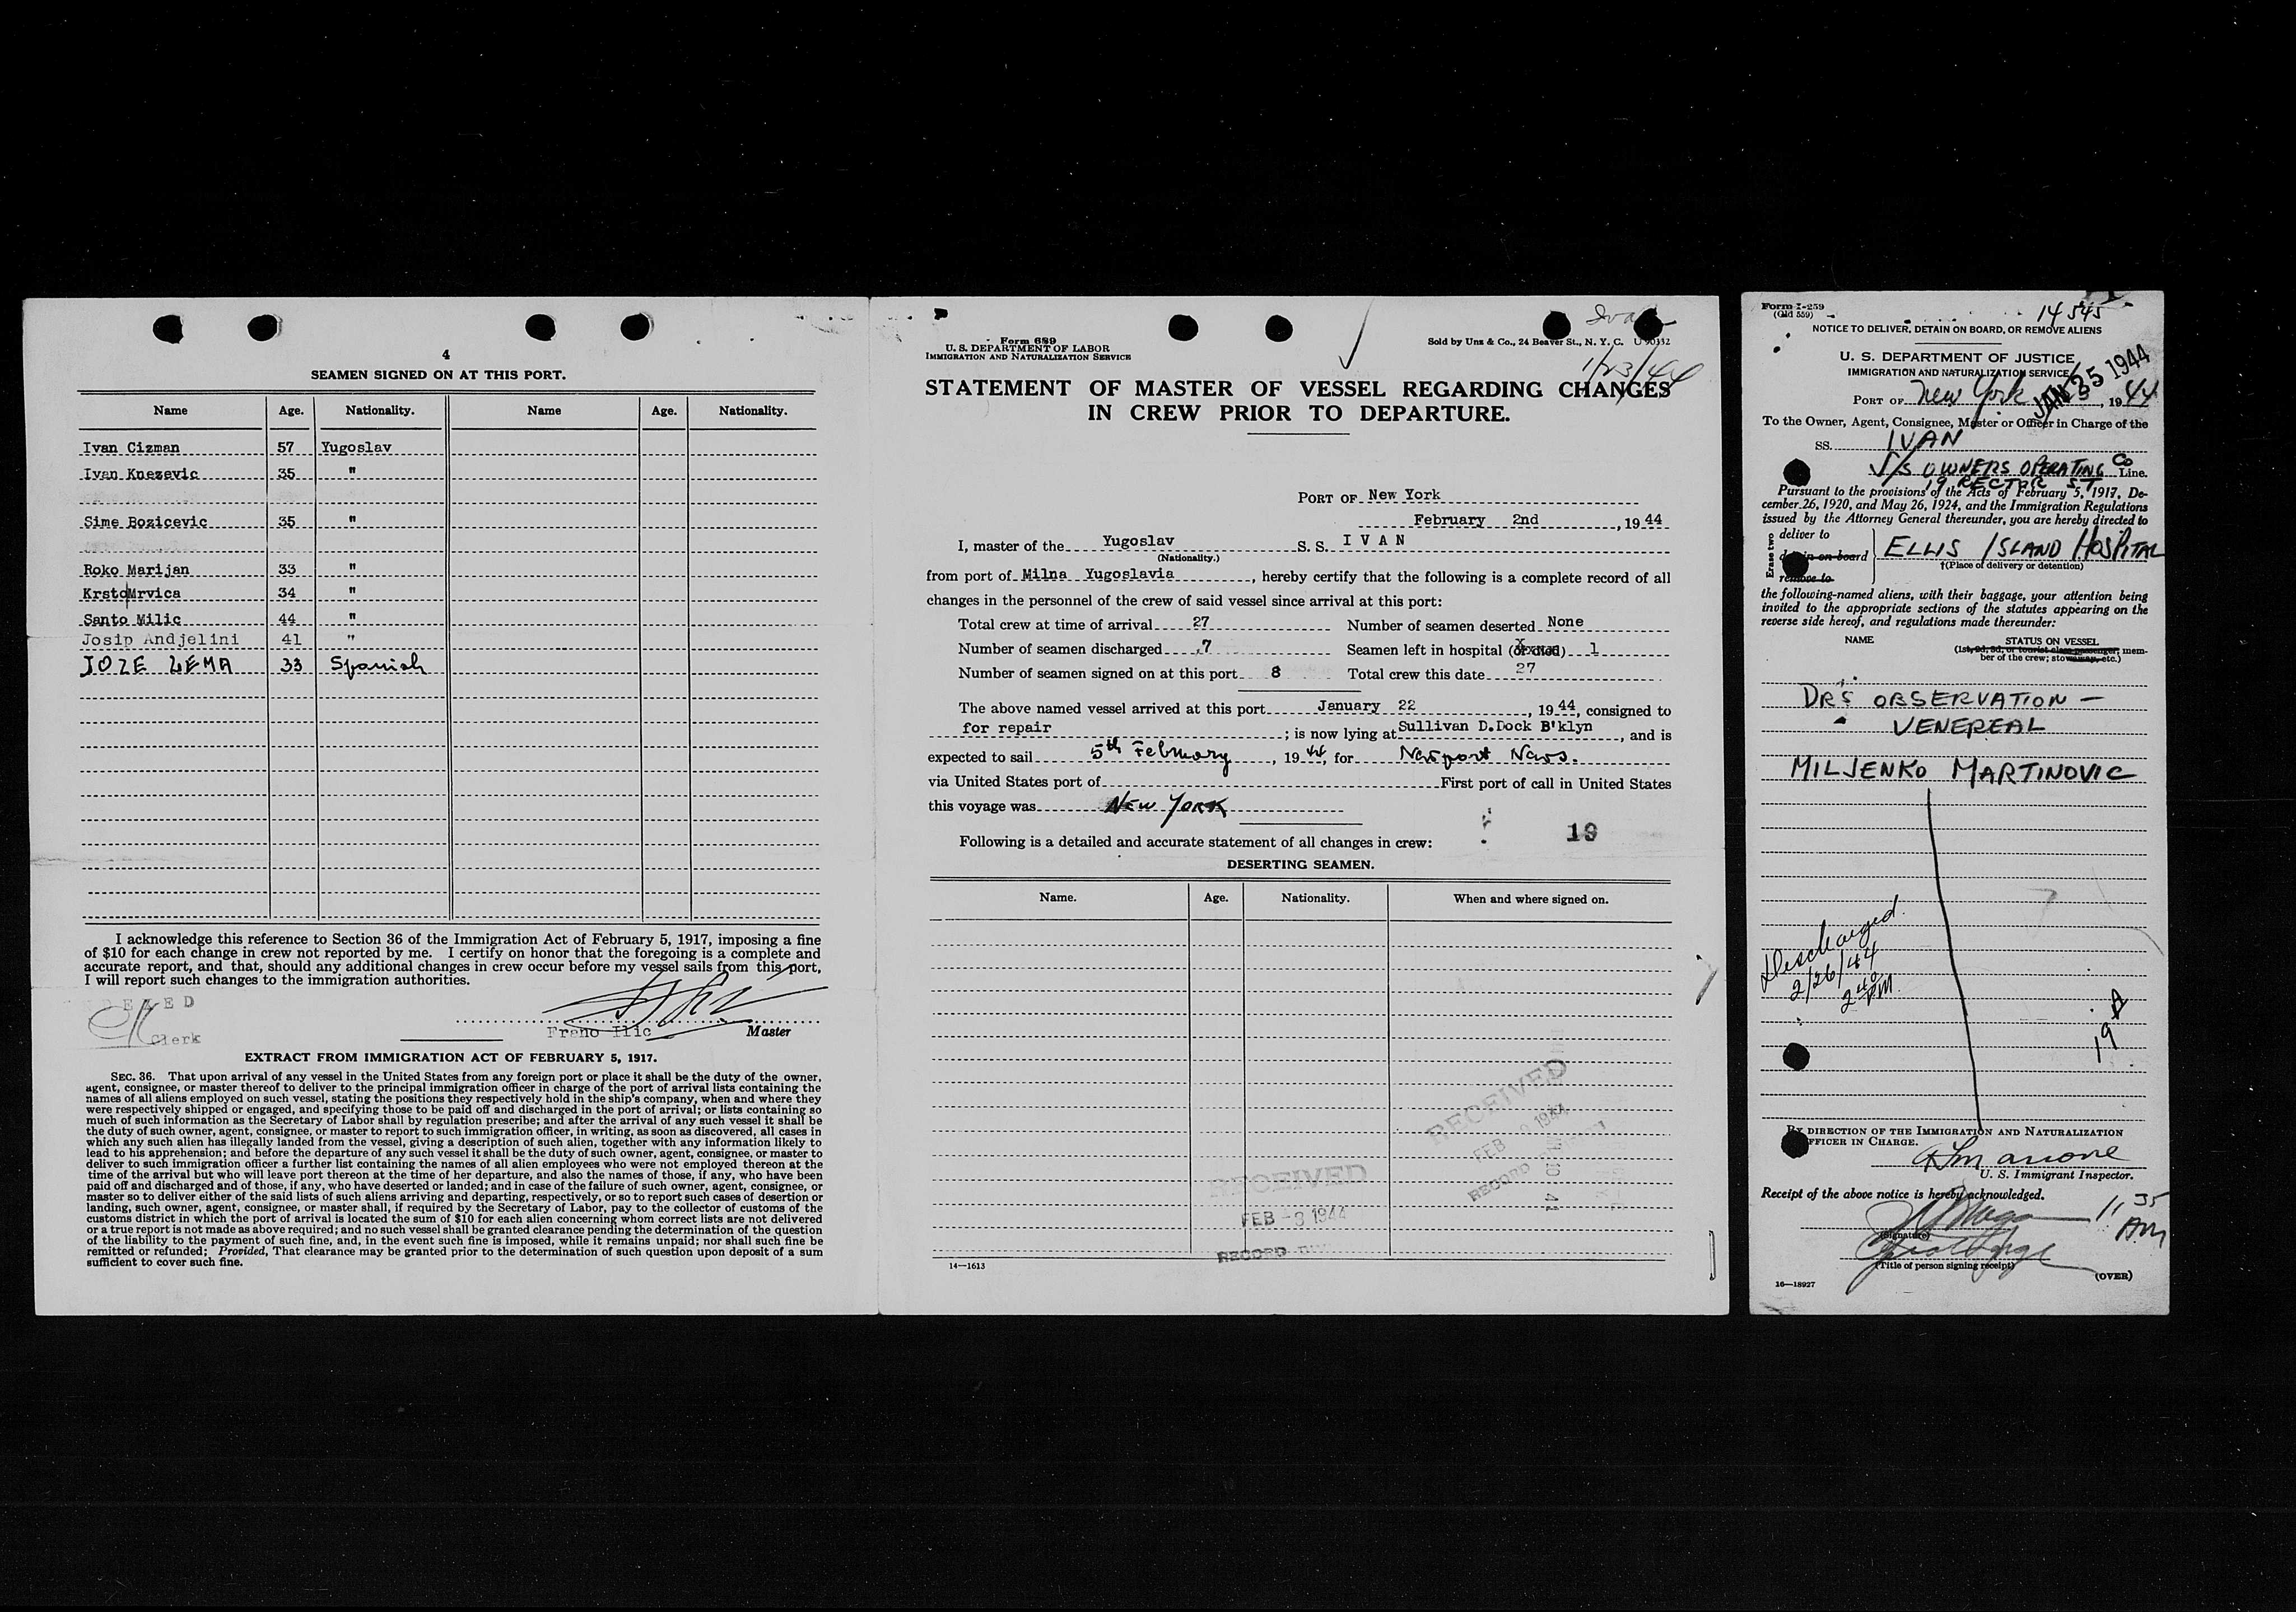 4
SEAMEN SIGNED ON AT THIS PORT.
Name Age. Nationality. Name Age. Nationality.
Ivan Cizman 57 Yugoslav
Ivan Knezevic 35 "
Sime Bozicevic 35 "
Roko Marijan 33 "
Krsto Mrvica 34 "
Santo Milic 44 "
Josip Andjelini 41 "
JOZE LEMA 33 Spanish
I acknowledge this reference to Section 36 of the Immigration Act of February 5, 1917, imposing a fine
of $10 for each change in crew not reported by me. I certify on honor that the foregoing is a complete and
accurate report, and that, should any additional changes in crew occur before my vessel sails from this port,
I will report such changes to the immigration authorities.
Clerk
Frano Ilic Master
EXTRACT FROM IMMIGRATION ACT OF FEBRUARY 5, 1917.
SEC. 36. That upon arrival of any vessel in the United States from any foreign port or place it shall be the duty of the owner,
agent, consignee, or master thereof to deliver to the principal immigration officer in charge of the port of arrival lists containing the
names of all aliens employed on such vessel, stating the positions they respectively hold in the ship's company, when and where they
were respectively shipped or engaged, and specifying those to be paid off and discharged in the port of arrival; or lists containing so
much of such information as the Secretary of Labor shall by regulation prescribe; and after the arrival of any such vessel it shall be
the duty of such owner, agent, consignee, or master to report to such immigration officer, in writing, as soon as discovered, all cases in
which any such alien has illegally landed from the vessel, giving a description of such alien, together with any information likely to
lead to his apprehension; and before the departure of any such vessel it shall be the duty of such owner, agent, consignee, or master to
deliver to such immigration officer a further list containing the names of all alien employees who were not employed thereon at the
time of the arrival but who will leave port thereon at the time of her departure, and also the names of those, if any, who have been
paid off and discharged and of those, if any, who have deserted or landed; and in case of the failure of such owner, agent, consignee, or
master so to deliver either of the said lists of such aliens arriving and departing, respectively, or so to report such cases of desertion or
landing, such owner, agent, consignee, or master shall, if required by the Secretary of Labor, pay to the collector of customs of the
customs district in which the port of arrival is located the sum of $10 for each alien concerning whom correct lists are not delivered
or a true report is not made as above required; and no such vessel shall be granted clearance pending the determination of the question
of the liability to the payment of such fine, and, in the event such fine is imposed, while it remains unpaid; nor shall such fine be
remitted or refunded; Provided, That clearance may be granted prior to the determination of such question upon deposit of a sum
sufficient to cover such fine.
Form 689
U. S. DEPARTMENT OF LABOR
IMMIGRATION AND NATURALIZATION SERVICE
Sold by Unz & Co., 24 Beaver St., N. Y. C.
1/23/44
STATEMENT OF MASTER OF VESSEL REGARDING CHANGES
IN CREW PRIOR TO DEPARTURE.
PORT OF New York
February 2nd, 1944
I, master of the Yugoslav S. S. I V A N
(Nationality.)
from port of Milna Yugoslavia, hereby certify that the following is a complete record of all
changes in the personnel of the crew of said vessel since arrival at this port:
Total crew at time of arrival 27 Number of seamen deserted None
Number of seamen discharged 7 Seamen left in hospital (or died) 1
Number of seamen signed on at this port 8 Total crew this date 27
The above named vessel arrived at this port January 22, 1944, consigned to
for repair; is now lying at Sullivan D.Dock B'klyn, and is
expected to sail 5th February, 1944, for Newport News.
via United States port of First port of call in United States
this voyage was NEW YORK
19
Following is a detailed and accurate statement of all changes in crew:
DESERTING SEAMEN.
Name. Age. Nationality. When and where signed on.
RECEIVED
FEB 9 1944
RECORD
RECEIVED
FEB -3 1944
RECORD
14—1613
Form I-259
(Old 559)
14545
NOTICE TO DELIVER, DETAIN ON BOARD, OR REMOVE ALIENS
U. S. DEPARTMENT OF JUSTICE
IMMIGRATION AND NATURALIZATION SERVICE
JAN 25 1944
PORT OF New York, 1944
To the Owner, Agent, Consignee, Master or Officer in Charge of the
SS. IVAN
S/S OWNERS OPERATING Co Line.
19 RECTOR ST
Pursuant to the provisions of the Acts of February 5, 1917, De-
cember 26, 1920, and May 26, 1924, and the Immigration Regulations
issued by the Attorney General thereunder, you are hereby directed to
Erase two
deliver to
detain on board ELLIS ISLAND HOSPITAL
remove to †(Place of delivery or detention)
the following-named aliens, with their baggage, your attention being
invited to the appropriate sections of the statutes appearing on the
reverse side hereof, and regulations made thereunder:
NAME STATUS ON VESSEL
(1st, 2d, 3d, or tourist class passenger; mem-
ber of the crew; stowaway, etc.)
DR'S OBSERVATION —
VENEREAL
MILJENKO MARTINOVIC
Discharged
2/26/44
2 40 PM
19
BY DIRECTION OF THE IMMIGRATION AND NATURALIZATION
OFFICER IN CHARGE.
U. S. Immigrant Inspector.
Receipt of the above notice is hereby acknowledged.
11 35
AM
(Signature)
(Title of person signing receipt)
16—18927 (OVER)